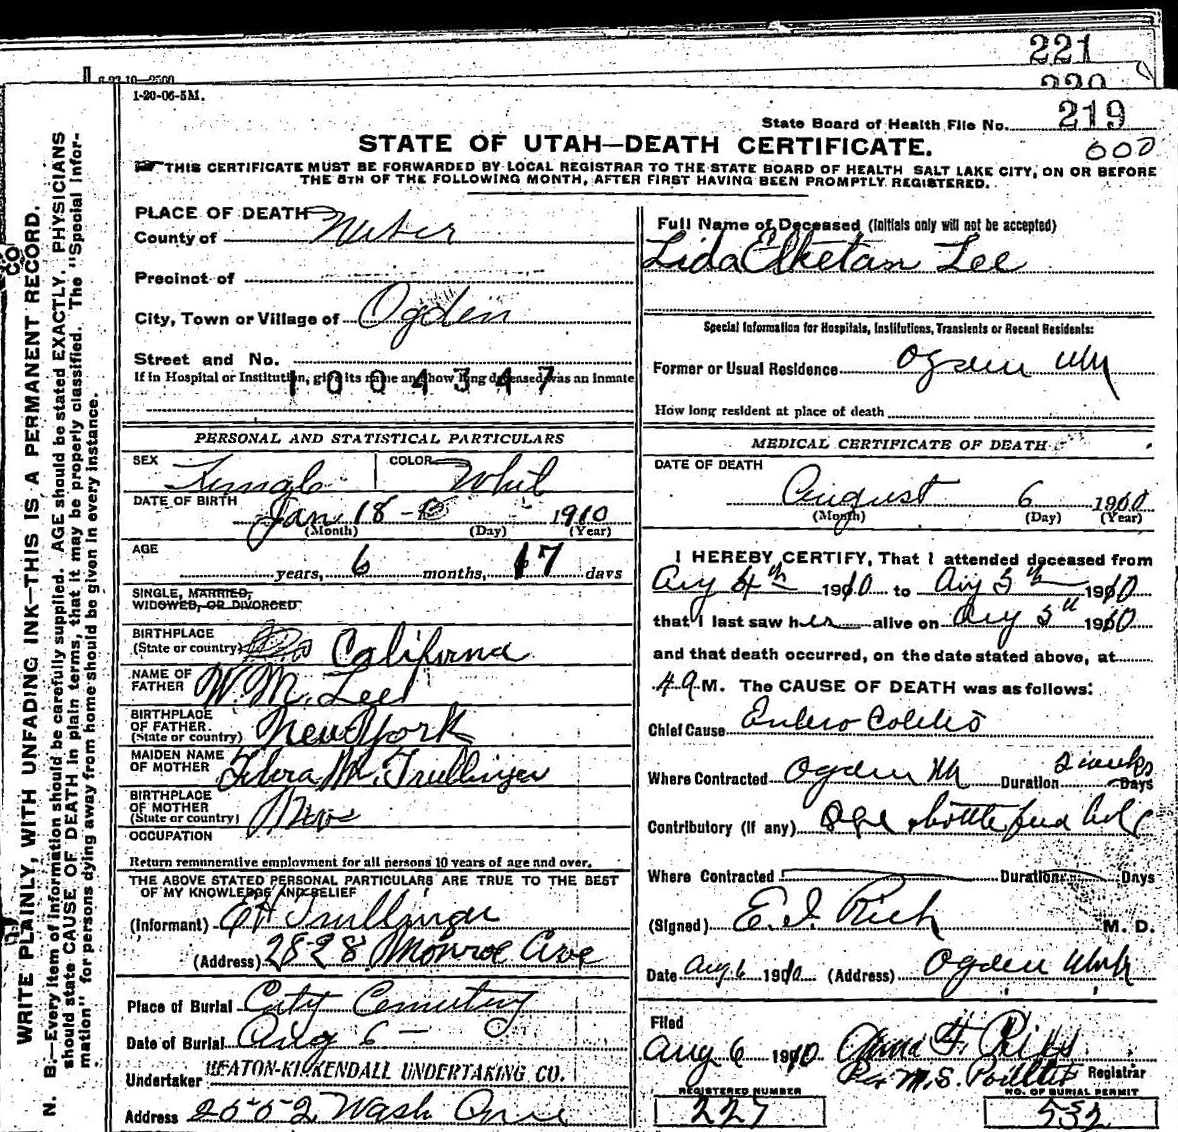 221
220
6-23-10—2500
1-20-06-5M.
State Board of Health File No. 219
000
STATE OF UTAH—DEATH CERTIFICATE.
THIS CERTIFICATE MUST BE FORWARDED BY LOCAL REGISTRAR TO THE STATE BOARD OF HEALTH SALT LAKE CITY, ON OR BEFORE
THE 5TH OF THE FOLLOWING MONTH, AFTER FIRST HAVING BEEN PROMPTLY REGISTERED.
WRITE PLAINLY, WITH UNFADING INK—THIS IS A PERMANENT RECORD.
N. B.—Every item of information should be carefully supplied. AGE should be stated EXACTLY. PHYSICIANS
should state CAUSE OF DEATH in plain terms, that it may be properly classified. The "Special Infor-
mation" for persons dying away from home should be given in every instance.
PLACE OF DEATH
County of Weber
Precinct of
City, Town or Village of Ogden
Street and No.
If in Hospital or Institution, give its name and how long deceased was an inmate
1004347
PERSONAL AND STATISTICAL PARTICULARS
SEX Female COLOR Whit
DATE OF BIRTH
Jan 18 1910
(Month) (Day) (Year)
AGE
years, 6 months, 17 days
SINGLE, MARRIED,
WIDOWED, OR DIVORCED
BIRTHPLACE
(State or country) California
NAME OF
FATHER W. M. Lee
BIRTHPLACE
OF FATHER
(State or country) New York
MAIDEN NAME
OF MOTHER M. Trullinger
BIRTHPLACE
OF MOTHER
(State or country)
OCCUPATION
Return remunerative employment for all persons 10 years of age and over.
THE ABOVE STATED PERSONAL PARTICULARS ARE TRUE TO THE BEST
OF MY KNOWLEDGE AND BELIEF
(Informant) E H Trullinger
(Address) 2828 Monroe Ave
Place of Burial City Cemetery
Date of Burial Aug 6 —
Undertaker HEATON-KIRKENDALL UNDERTAKING CO.
Address 2552 Wash Ave
Full Name of Deceased (Initials only will not be accepted)
Lida Elketan Lee
Special Information for Hospitals, Institutions, Transients or Recent Residents:
Former or Usual Residence Ogden
How long resident at place of death
MEDICAL CERTIFICATE OF DEATH
DATE OF DEATH
August 6 1910
(Month) (Day) (Year)
I HEREBY CERTIFY, That I attended deceased from
Aug 4th 1910 to Aug 5th 1910
that I last saw her alive on Aug 5th 1910
and that death occurred, on the date stated above, at
M. The CAUSE OF DEATH was as follows:
Chief Cause Entero Colitis
Where Contracted Ogden Duration 2 weeks Days
Contributory (if any) bottle fed
Where Contracted Duration Days
(Signed) E. I. Rich M. D.
Date Aug 6 1910 (Address) Ogden Utah
Filed
Aug 6 1910
Per M. S. Poulter Registrar
REGISTERED NUMBER
227
NO. OF BURIAL PERMIT
532